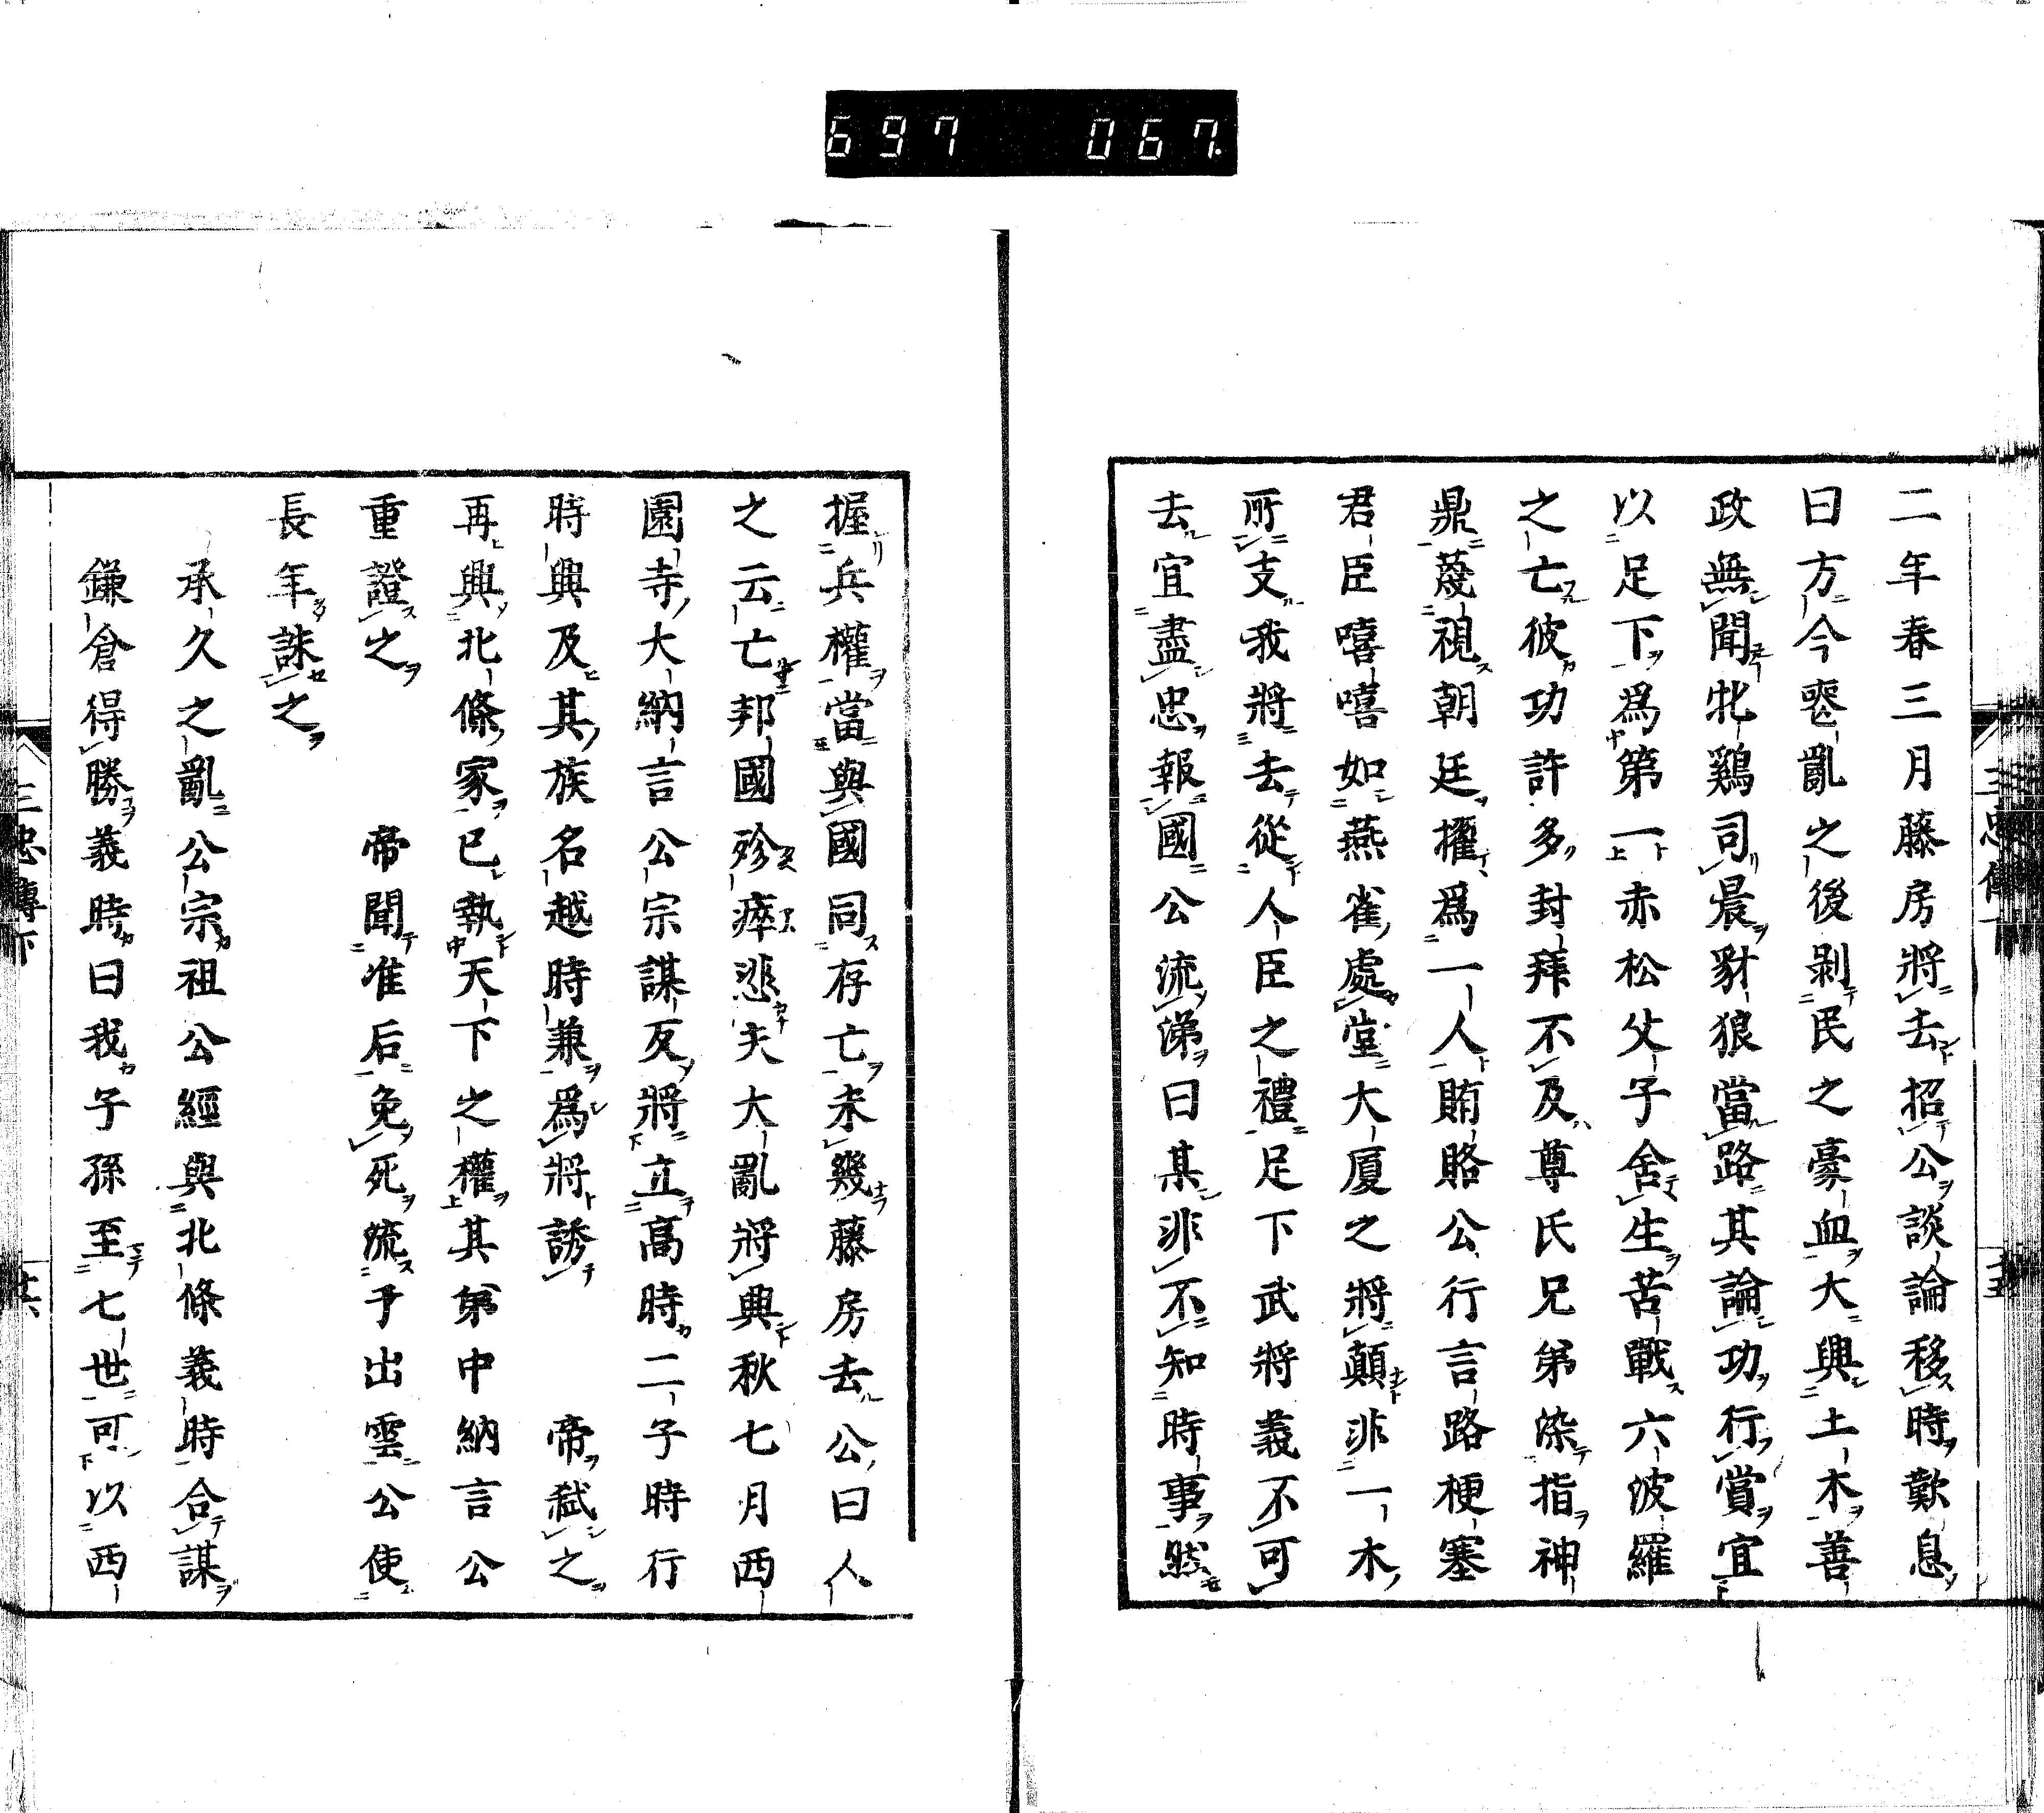 697 067.
二年春三月藤房將去招公談論移時歎息
曰方今喪亂之後剝民之豪血大興土木善
政無聞牝鷄司晨豺狼當路其論功行賞宜
以足下爲第一赤松父子舍生苦戰六波羅
之亡彼功許多封拜不及尊氏兄弟染指神
鼎蔑視朝廷擢爲一人賄賂公行言路梗塞
君臣嘻嘻如燕雀處堂大厦之將顛非一木
所支我將去從人臣之禮足下武將義不可
去宜盡忠報國公流涕曰某非不知時事然
握兵權當與國同存亡未幾藤房去公曰人
之云亡邦國殄瘁悲夫大亂將興秋七月西
園寺大納言公宗謀反將立高時二子時行
時興及其族名越時兼爲將誘帝弑之
再興北條家已執天下之權其第中納言公
重證之帝聞准后免死流于出雲公使
長年誅之
承久之亂公宗祖公經與北條義時合謀
鎌倉得勝義時曰我子孫至七世可以西
三忠傳下